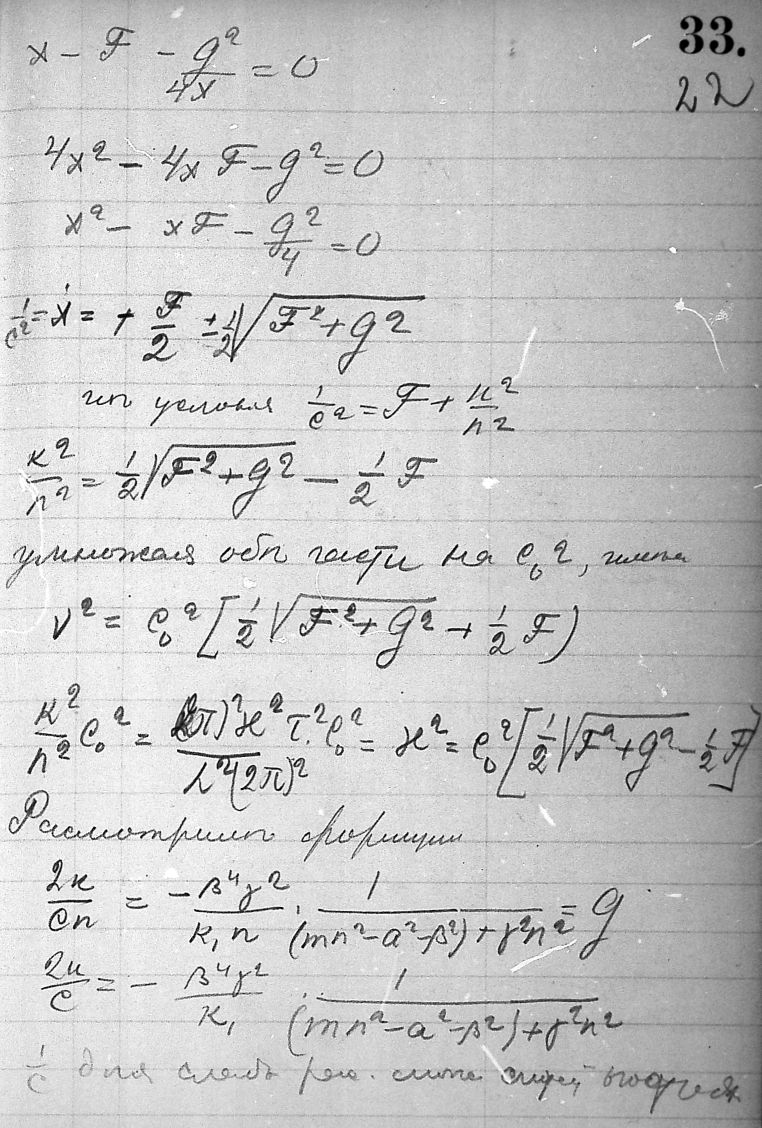 33.
22
x - F - g²/4x = 0
4x² - 4xF - g² = 0
x² - xF - g²/4 = 0
1/c² = x = + F/2 ± 1/2 √(F² + g²)
из условия 1/c² = F + к²/n²
к²/n² = 1/2 √(F² + g²) - 1/2 F
умножая обе части на c₀²,
ν² = c₀² [1/2 √(F² + g²) + 1/2 F)
к²/n² c₀² = (2π)² ϰ² τ² c₀² / λ² (2π)² = ϰ² = c₀² [1/2 √(F² + g²) - 1/2 F]
Рассмотрим
2к/cn = - β⁴γ²/к₁n · 1/(mn² - a² - β²) + γ²n² = g
2к/c = - β⁴γ²/к₁ · 1/(mn² - a² - β²) + γ²n²
1/c для